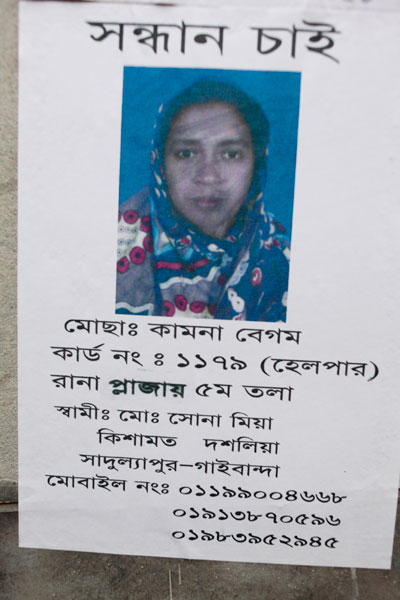 সন্ধান চাই
মোছাঃ কামনা বেগম
কার্ড নং ঃ ১১৭৯ (হেলপার)
রানা প্লাজায় ৫ম তলা
স্বামীঃ মোঃ সোনা মিয়া
কিশামত দশলিয়া
সাদুল্যাপুর-গাইবান্দা
মোবাইল নংঃ ০১১৯৯০০৪৬৬৮
০১৯১৩৮৭০৫৯৬
০১৯৮৩৯৫২৯৪৫